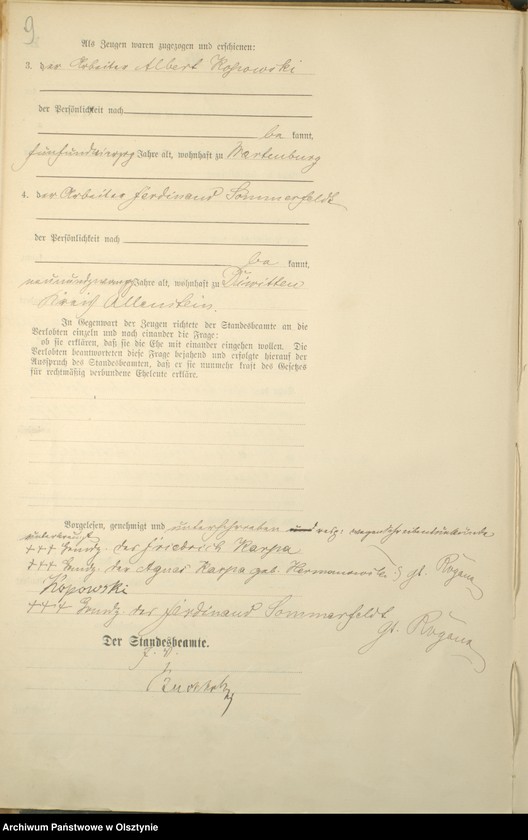 9.
Als Zeugen waren zugezogen und erschienen:
3. der Arbeiter Albert Kopowski
der Persönlichkeit nach
be kannt,
fünfundvierzig Jahre alt, wohnhaft zu Wartenburg
4. der Arbeiter Ferdinand Sommerfeldt
der Persönlichkeit nach
be kannt,
neunundzwanzig Jahre alt, wohnhaft zu Diwitten
Kreis Allenstein.
In Gegenwart der Zeugen richtete der Standesbeamte an die
Verlobten einzeln und nach einander die Frage:
ob sie erklären, daß sie die Ehe mit einander eingehen wollen. Die
Verlobten beantworteten diese Frage bejahend und erfolgte hierauf der
Ausspruch des Standesbeamten, daß er sie nunmehr kraft des Gesetzes
für rechtmäßig verbundene Eheleute erkläre.
Vorgelesen, genehmigt und unterschrieben und resp. wegen Schreibensunkunde
unterkreuzt
+++ Handz. des Friedrich Karpa
+++ Handz. der Agnes Karpa geb.
Kopowski
+++ Handz. des Ferdinand Sommerfeldt
Der Standesbeamte.
Archiwum Państwowe w Olsztynie